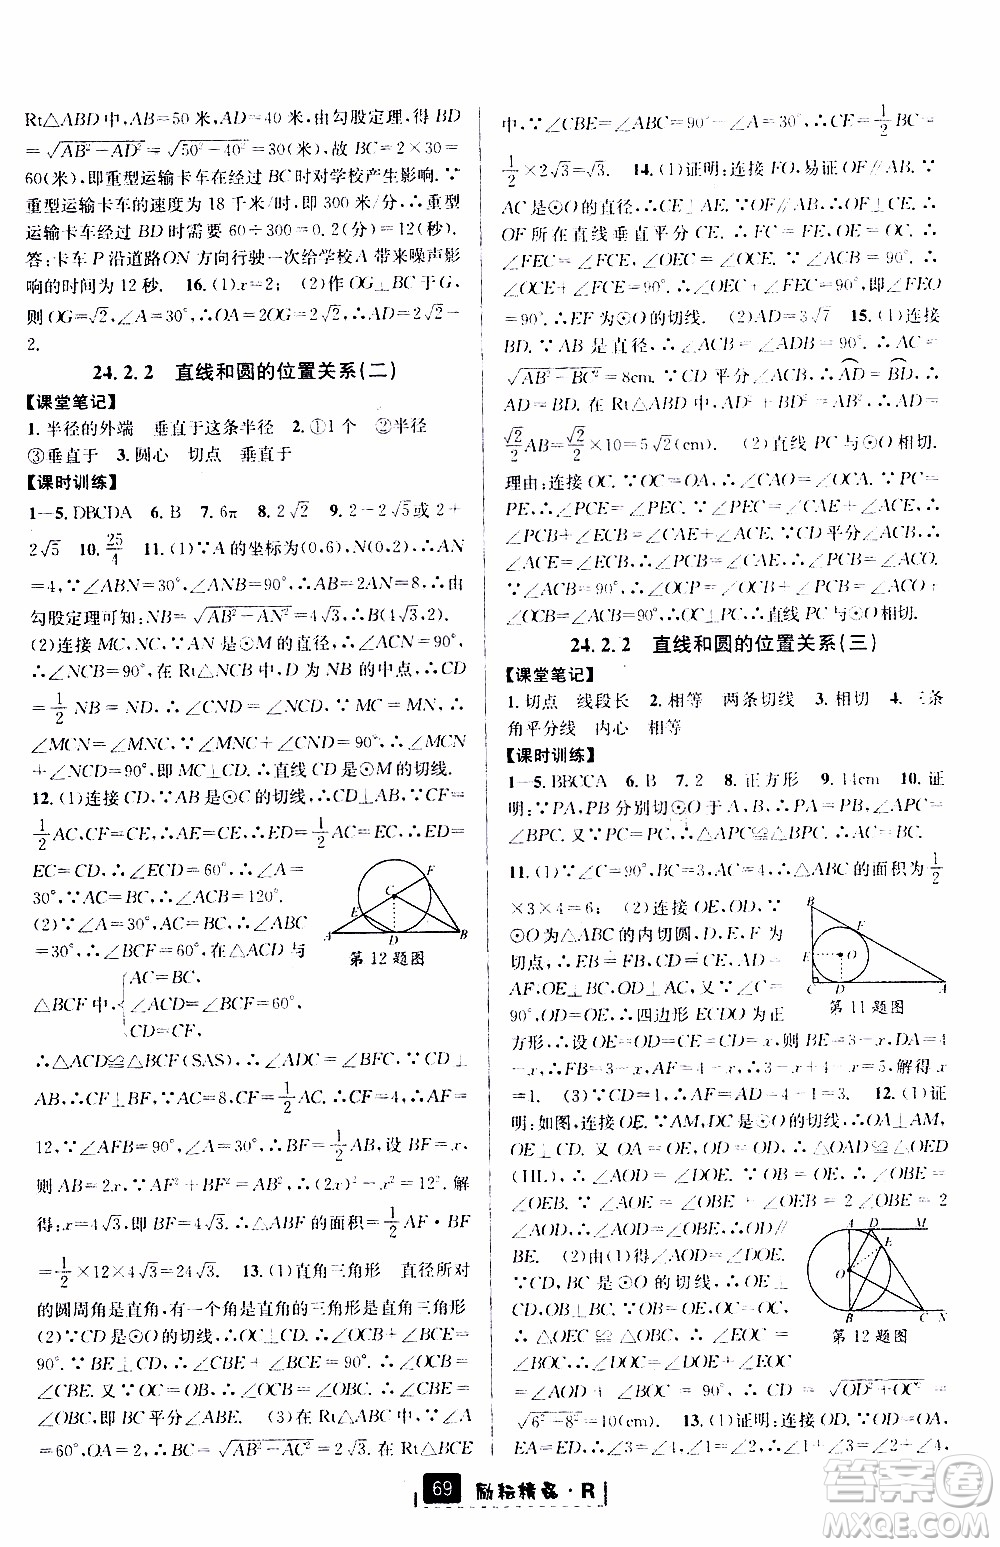 Rt△ABD中,AB=50米,AD=40米,由勾股定理,得BD
=√(AB²-AD²)=√(50²-40²)=30(米),故BC=2×30=
60(米),即重型运输卡车在经过BC时对学校产生影响.∵
重型运输卡车的速度为18千米/时,即300米/分,∴重型
运输卡车经过BD时需要60÷300=0.2(分)=12(秒).
答:卡车P沿道路ON方向行驶一次给学校A带来噪声影
响的时间为12秒. 16.(1)x=2; (2)作OG⊥BC于G,
则OG=√2,∠A=30°,∴OA=2OG=2√2,∴x=2√2-
2.
24.2.2 直线和圆的位置关系(二)
【课堂笔记】
1.半径的外端 垂直于这条半径 2.①1个 ②半径
③垂直于 3.圆心 切点 垂直于
【课时训练】
1—5.DBCDA 6.B 7.6π 8.2√2 9.2-2√5或2+
2√5 10.25/4 11.(1)∵A的坐标为(0,6),N(0,2)∴AN
=4,∵∠ABN=30°,∠ANB=90°,∴AB=2AN=8,∴由
勾股定理可知:NB=√(AB²-AN²)=4√3,∴B(4√3,2).
(2)连接MC,NC,∵AN是⊙M的直径,∴∠ACN=90°,
∴∠NCB=90°,在Rt△NCB中,D为NB的中点,∴CD=
1/2NB=ND,∴∠CND=∠NCD,∵MC=MN,∴
∠MCN=∠MNC,∵∠MNC+∠CND=90°,∴∠MCN
+∠NCD=90°,即MC⊥CD.∴直线CD是⊙M的切线.
12.(1)连接CD,∵AB是⊙C的切线,∴CD⊥AB,∴CF=
1/2AC,CF=CE,∴AE=CE,∴ED=1/2AC=EC,∴
EC=CD,∴∠ECD=60°,∴∠A=
30°,∵AC=BC,∴∠ACB=120°.
(2)∵∠A=30°,AC=BC,∴∠ABC
=30°,∴∠BCF=60°,在△ACD与
△BCF中,{AC=BC
∠ACD=∠BCF=60°,
CD=CF
第12题图
∴△ACD≌△BCF(SAS),∴∠ADC=∠BFC,∵CD⊥
AB,∴CF⊥BF,∵AC=8,CF=1/2AC.∴CF=4,∴AF=
12,∵∠AFB=90°,∠A=30°,∴BF=1/2AB,设BF=x,
则AB=2x,∵AF²+BF²=AB²,∴(2x)²-x²=12².解
得:x=4√3,即BF=4√3,∴△ABF的面积=1/2AF·BF
=1/2×12×4√3=24√3. 13.(1)直角三角形 直径所对
的圆周角是直角,有一个角是直角的三角形是直角三角形
(2)∵CD是⊙O的切线,∴OC⊥CD,∴∠OCB+∠BCD=
90°.∵BE⊥CD,∴∠CBE+∠BCE=90°,∴∠OCB=
∠CBE.又∵OC=OB,∴∠OCB=∠OBC,∴∠CBE=
∠OBC,即BC平分∠ABE. (3)在Rt△ABC中,∵∠A
=60°,OA=2,∴BC=√(AB²-AC²)=2√3.在Rt△BCE
中,∵∠CBE=∠ABC=90°-∠A=30°,∴CE=1/2BC=
1/2×2√3=√3. 14.(1)证明:连接FO,易证OF∥AB.∵
AC是⊙O的直径,∴CE⊥AE.∵OF∥AB,∴OF⊥CE,∴
OF所在直线垂直平分CE,∴FC=FE,OE=OC,∴
∠FEC=∠FCE,∠OEC=∠OCE.∵∠ACB=90°,即
∠OCE+∠FCE=90°,∴∠OEC+∠FEC=90°,即∠FEO
=90°,∴EF为⊙O的切线. (2)AD=3√7 15.(1)连接
BD.∵AB是直径,∴∠ACB=∠ADB=90°,∴AC=
√(AB²-BC²)=8cm.∵CD平分∠ACB,∴AD=BD,
∴AD=BD.在Rt△ABD中,AD=BD=
√2/2AB=√2/2×10=5√2(cm). (2)直线PC与⊙O相切.
理由:连接OC.∵OC=OA,∴∠CAO=∠OCA.∵PC=
PE,∴∠PCE=∠PEC.∵∠PEC=∠CAE+∠ACE,
∠PCB+∠ECB=∠PCE,∴∠PCB+∠ECB=∠CAE+∠ACE.
∵CD平分∠ACB,∴∠ACE=∠ECB,∴∠PCB=∠CAE,∴∠PCB=∠ACO.
∵∠ACB=90°,∴∠OCP=∠OCB+∠PCB=∠ACO+
∠OCB=∠ACB=90°,∴OC⊥PC,∴直线PC与⊙O相切.
24.2.2 直线和圆的位置关系(三)
【课堂笔记】
1.切点 线段长 2.相等 两条切线 3.相切 4.三条
角平分线 内心 相等
【课时训练】
1—5.BBCCA 6.B 7.2 8.正方形 9.14cm 10.证
明:∵PA,PB分别切⊙O于A,B,∴PA=PB,∠APC=
∠BPC.又∵PC=PC,∴△APC≌△BPC.∴AC=BC.
11.(1)∵∠C=90°,BC=3,AC=4,∴△ABC的面积为1/2
×3×4=6; (2)连接OE,OD,∵
⊙O为△ABC的内切圆,D,E,F为
切点,∴EB=FB,CD=CE,AD=
AF,OE⊥BC,OD⊥AC,又∵∠C=
90°,OD=OE,∴四边形ECDO为正
方形,∴设OE=OD=CE=CD=x,∴BE=3-x,DA=4
-x,∴FB=3-x,AF=4-x,∴3-x+4-x=5,解得x
=1. (3)∵CD=1,∴AF=AD=4-1=3. 12.(1)证
第11题图
明:如图,连接OE.∵AM,DC是⊙O的切线,∴OA⊥AM,
OE⊥CD.又∵OA=OE,OD=OD,∴△OAD≌△OED
(HL),∴∠AOD=∠DOE.同理可得∠OBE=
∠OEB.∵∠AOE=∠OBE+∠OEB=2∠OBE
=2∠AOD,∴∠AOD=∠OBE,∴OD∥
BE. (2)由(1)得∠AOD=∠DOE.同
理,∵CD,BC是⊙O的切线,∴CE=CB,
∴△OEC≌△OBC,∴∠EOC=∠BOC,
∴∠AOD+∠BOC=90°,∴CD=√(OD²+OC²)=
√(6²+8²)=10(cm). 13.(1)证明:连接OE.∵OD=OA,
EA=ED,OE=OE,∴△EDO≌△EAO,∴∠EDO=
第12题图
69 励耘精品·R
答案圈
MXQE.COM